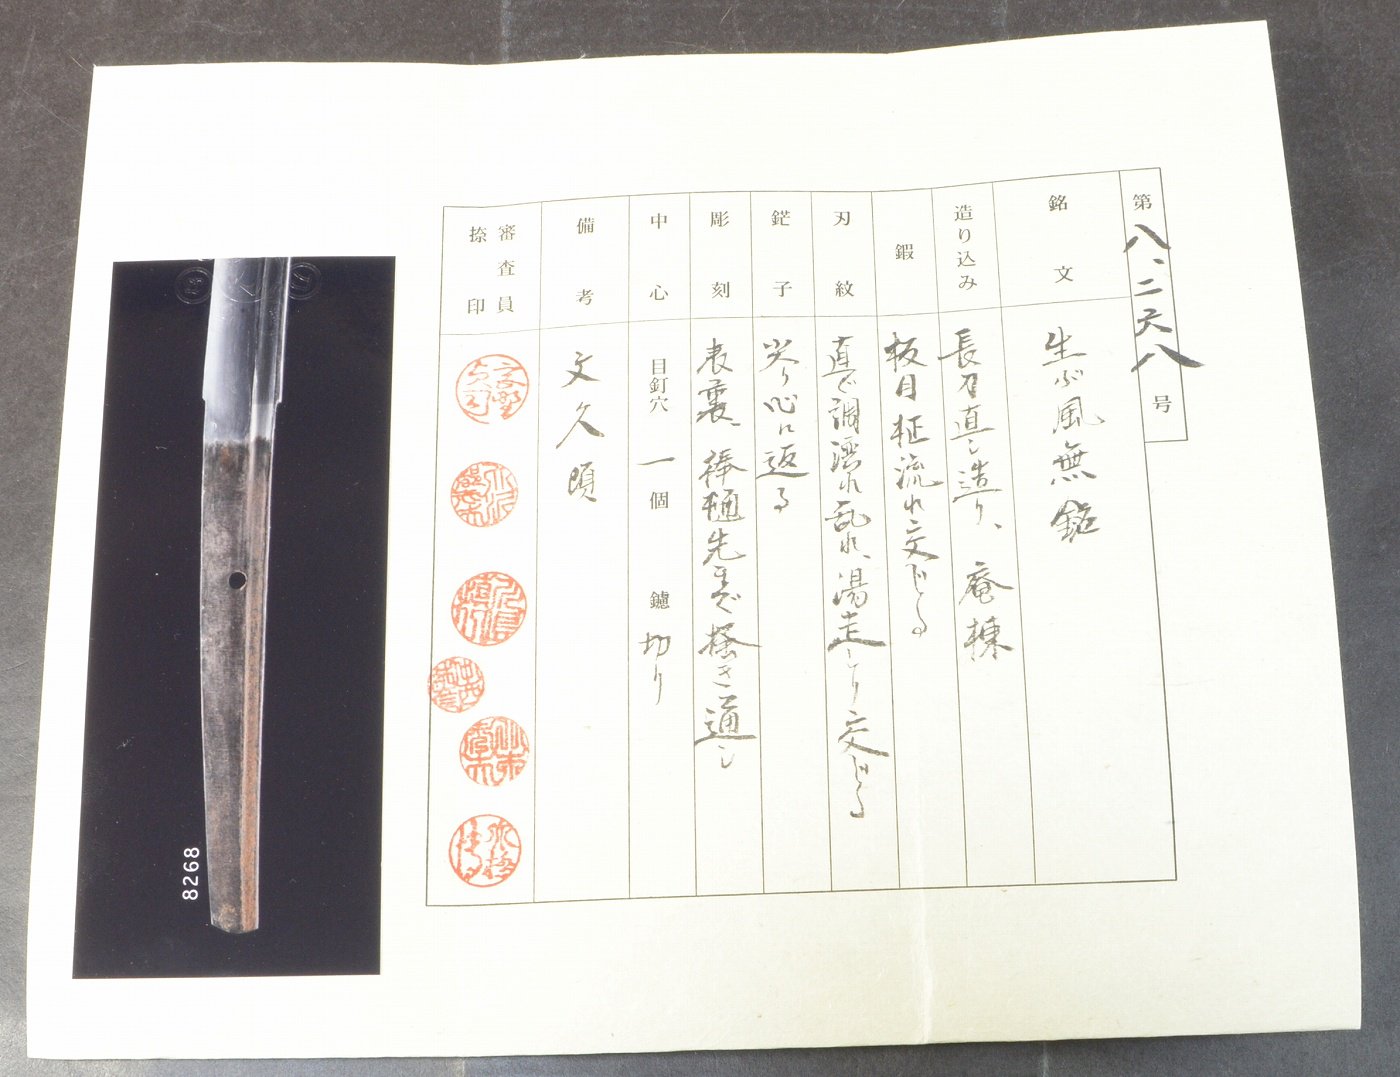 第八、二六八号
銘文
生ぶ風無銘
造り込み
長刀直し造り、庵棟
鍜
板目柾流れ交じる
刃紋
直ぐ調湾れ乱れ、湯走り交じる
鋩子
尖り心に返る
彫刻
表裏、棒樋先まで掻き通し
中心
目釘穴 一個 鑢 切り
備考
文久頃
審査員
捺印
8268